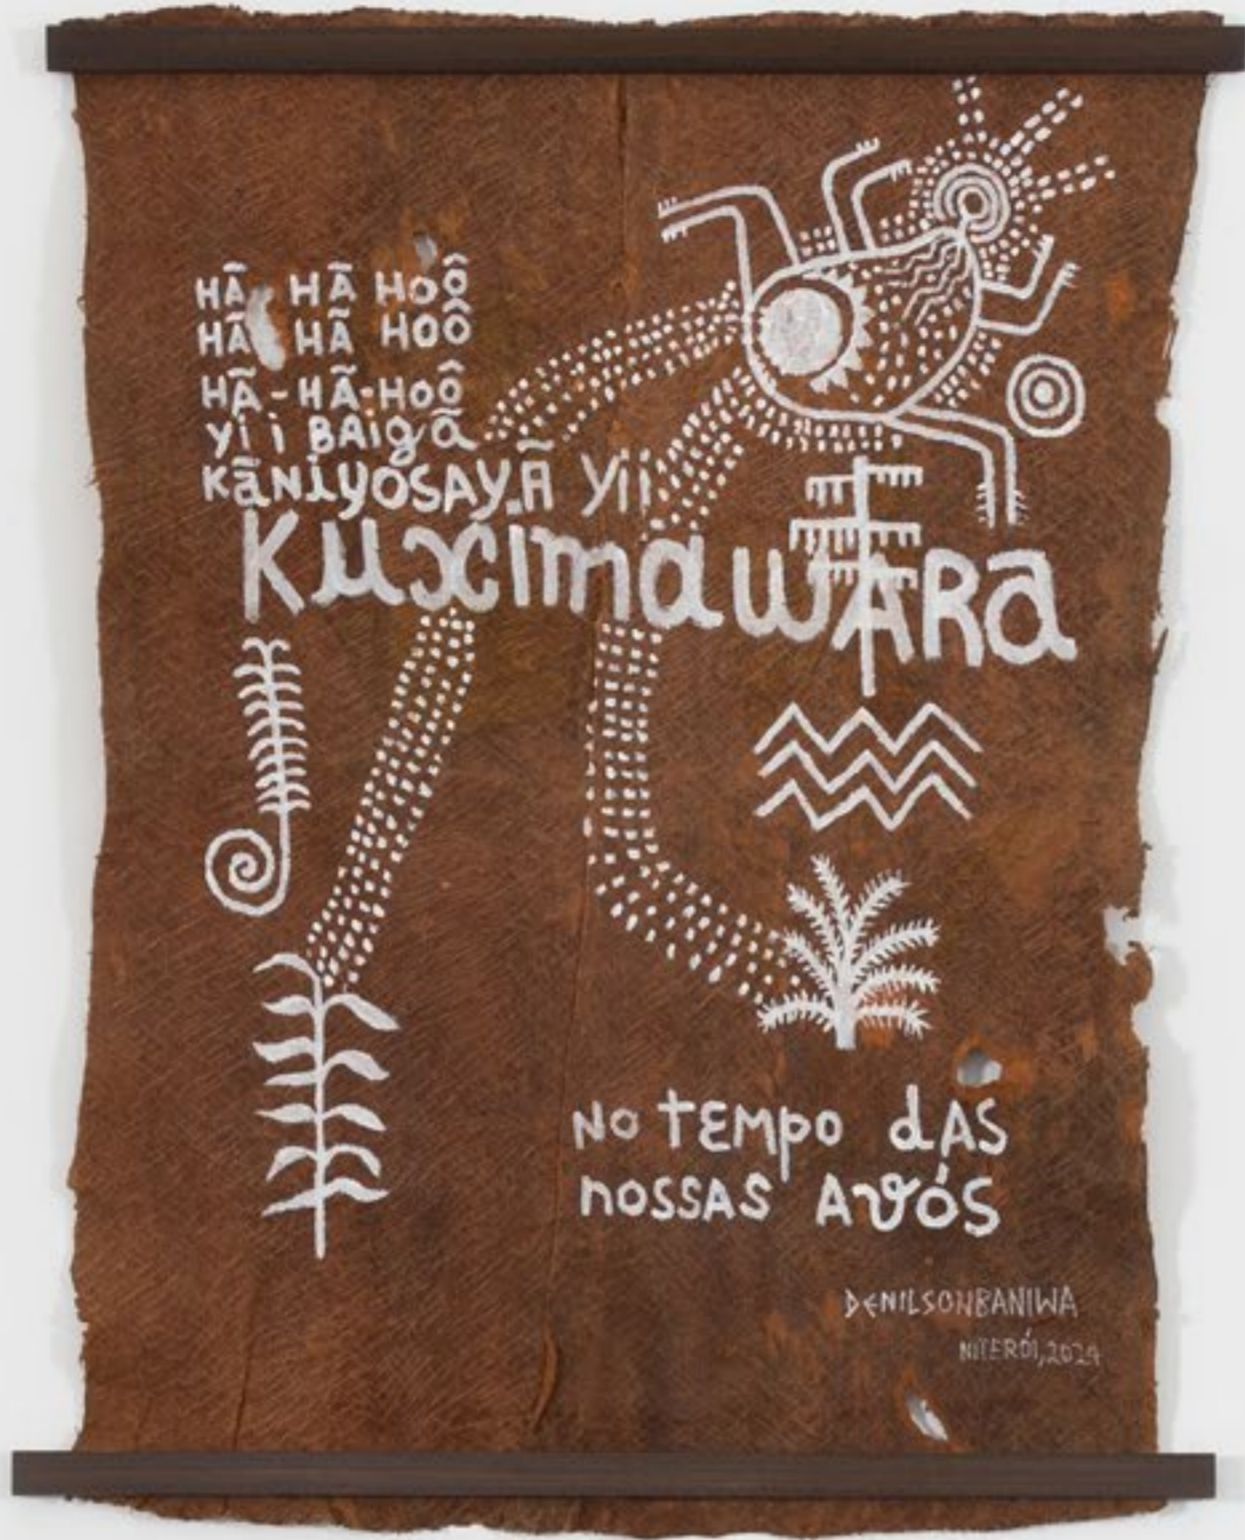 HÃ HÃ HOÔ
HÃ HÃ HOÔ
HÃ-HÃ-HOÔ
yii BAigã
KãNiyOSAYÃ Yii
KuximawARa
NO TEMPO dAS
nOSSAS AvóS
DENILSONBANIWA
NITERÓI, 2024